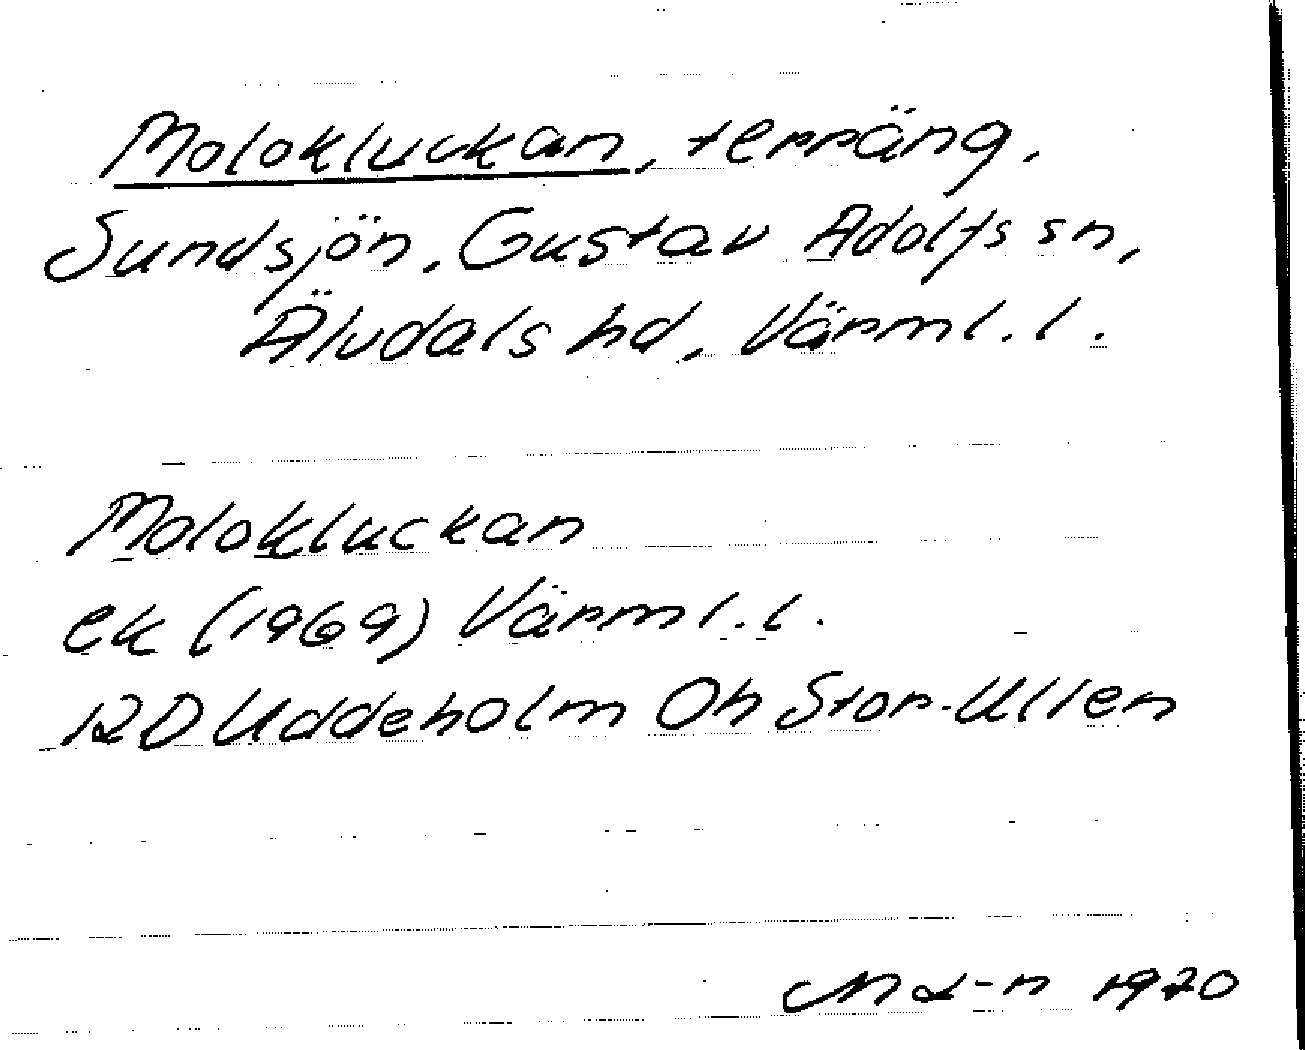 Molokluckan, terräng,
Sundsjön, Gustav Adolfs sn,
Älvdals hd, Värml. l.
Molokluckan
ek (1969) Värml. l.
12D Uddeholm Oh Stor-Ullen
1970